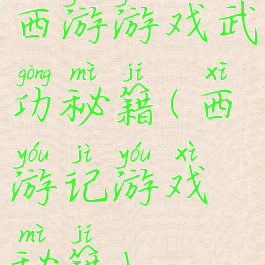 西游游戏武
gōng mì jí xī
功秘籍(西
yóu jì yóu xì
游记游戏
mì jí
秘籍)